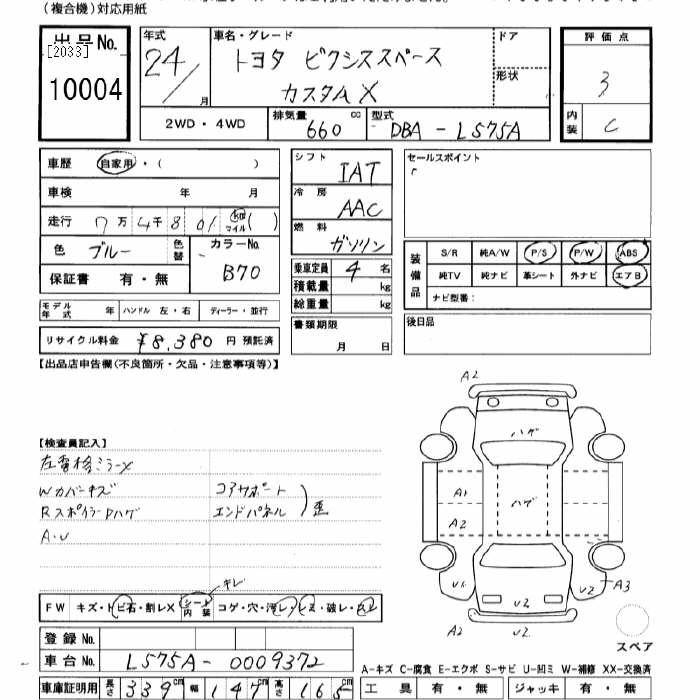 (複合機)対応用紙
出品No.
[2033]
10004
年式
24/
月
車名・グレード
トヨタ ピクシススペース
カスタムX
ドア
形状
2WD・4WD
排気量
660 cc
型式
DBA-L575A
評価点
3
内装
C
車歴 自家用・( )
車検 年 月
走行 7万4千801 km マイル ( )
色 ブルー 色替
カラーNo.
B70
保証書 有・無
モデル年式 年 ハンドル 左・右 ディーラー・並行
リサイクル料金 ¥8,380 円 預託済
シフト
IAT
冷房
AAC
燃料
ガソリン
乗車定員 4 名
積載量 kg
総重量 kg
書類期限
月 日
セールスポイント
装備品
S/R 純A/W P/S P/W ABS
純TV 純ナビ 革シート 外ナビ エアB
ナビ型番:
後日品
【出品店申告欄(不良箇所・欠品・注意事項等)】
【検査員記入】
左電格ミラーX
Wカバーキズ コアサポート
RスポイラーPハゲ エンドパネル ) 歪
A・U
キレ
FW キズ・トビ石・割レX シート内装 コゲ・穴・汚レ・ヒビ・破レ
登録No.
車台No. L575A-0009372
車庫証明用 長さ 339cm 幅 147cm 高さ 165cm
A2
ハゲ
A1
ハゲ
A2
U2
U2
A3
U2
A2
U2
スペア
A-キズ C-腐食 E-エクボ S-サビ U-凹ミ W-補修 XX-交換済
工具 有・無 ジャッキ 有・無